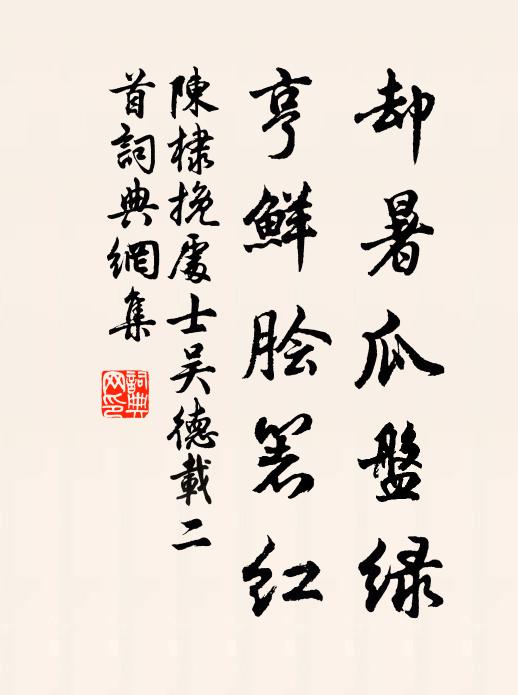 却暑瓜盤绿
亨鮮膾箸红
陳棣挽處士吴德載二
首詞典網集
詞典
网印